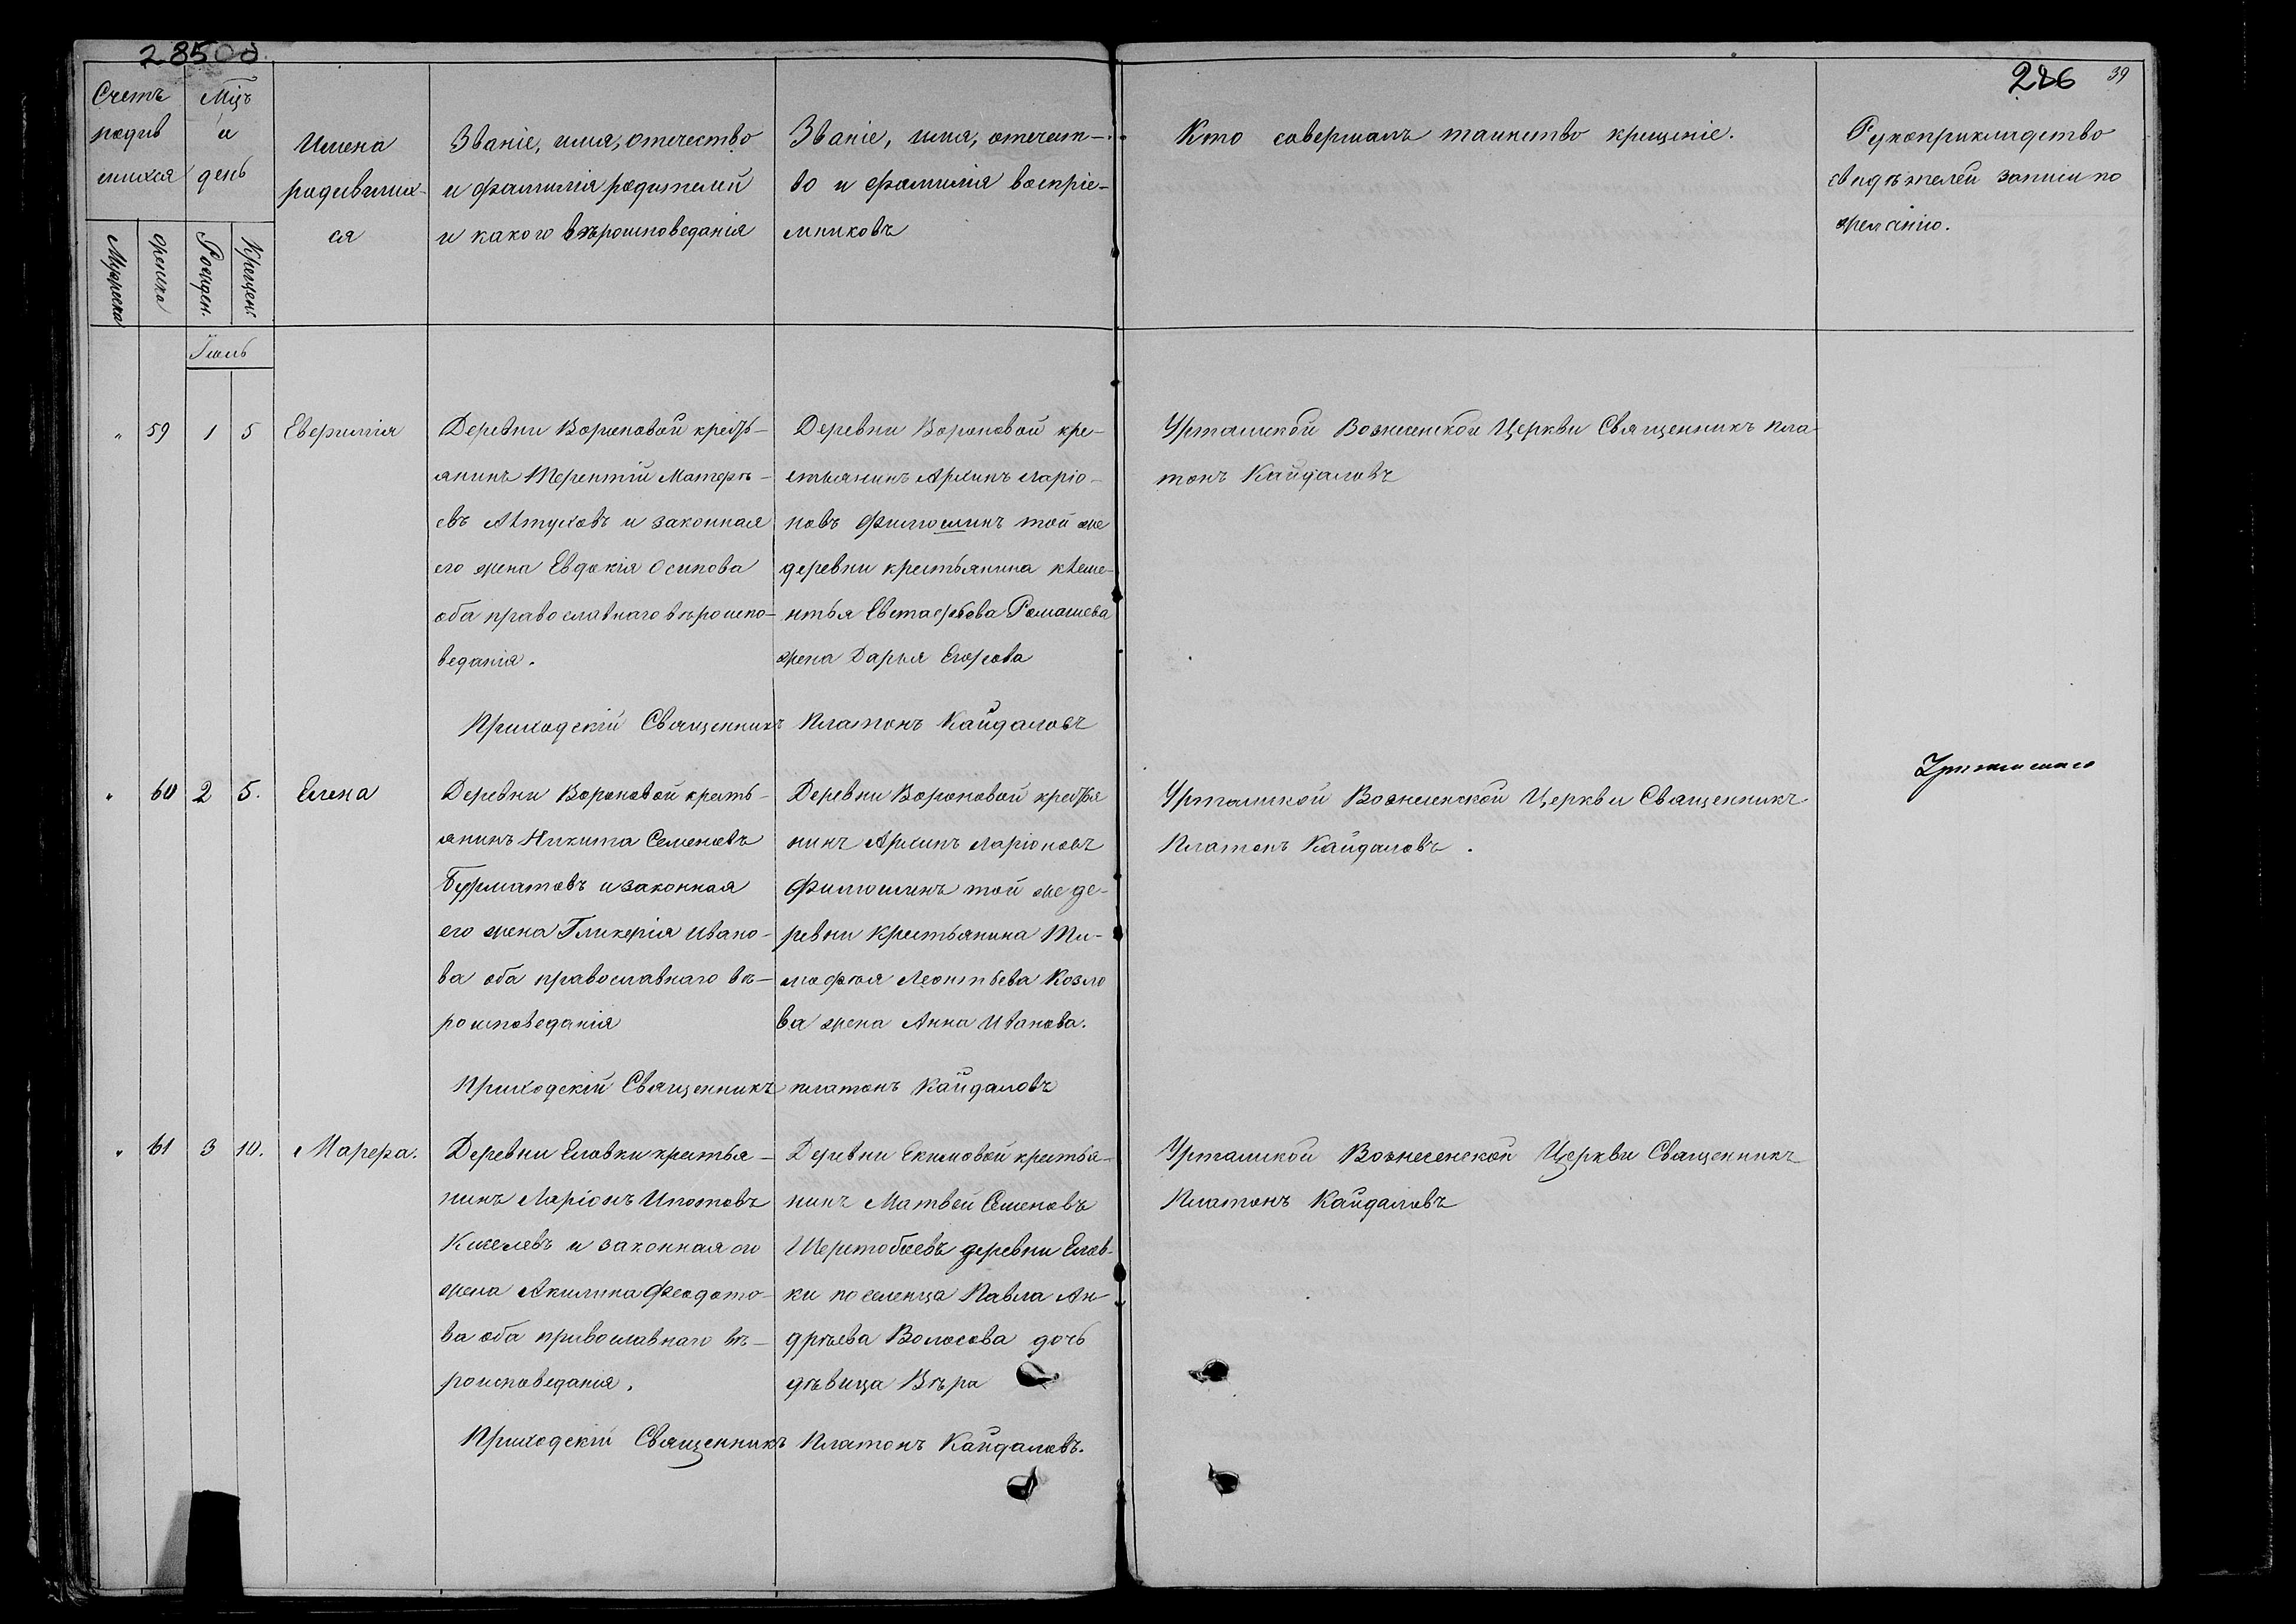 285об.
286 39
Счетъ
родив
шихся
Мцъ
и
день
Имена
родивших-
ся
Званіе, имя, отечество
и фамилія родителей
и какого вѣроисповеданія
Званіе, имя, отечест-
во и фамилія воспріе-
мниковъ
Кто совершалъ таинство крещеніе.
Рукоприкладство
свидѣтелей записи по
желанію.
Мужеска
женска
Рожден.
Крещен.
Іюль
" 59 1 5 Евфимія
Деревни Вороновой кресть-
янинъ Терентій Матфѣ-
евъ Алтуховъ и законная
его жена Евдокія Осипова
оба православнаго вѣроиспо-
веданія.
Деревни Вороновой кре-
стьянинъ Архипъ Ларіо-
новъ Филюшинъ той же
деревни крестьянина Клеме-
нтья Евстафьева Ромашева
жена Дарья Егорова
Урташской Вознесенской Церкви Священникъ Пла
тонъ Кайдаловъ
Приходскій Священникъ Платонъ Кайдаловъ
" 60 2 5. Елена
Деревни Вороновой кресть-
янинъ Никита Семеновъ
Бурматовъ и законная
его жена Гликерія Ивано-
ва оба православнаго вѣ-
роисповеданія
Деревни Вороновой крестья
нинъ Архипъ Ларіоновъ
Филюшинъ той же де-
ревни крестьянина Ти-
мофѣя Леонтьева Козло
ва жена Анна Иванова.
Урташской Вознесенской Церкви Священникъ
Платонъ Кайдаловъ.
Приходскій Священникъ Платонъ Кайдаловъ
" 61 3 10. Марѳа.
Деревни Еловки крестья-
нинъ Ларіонъ Ипатовъ
Киселевъ и законная его
жена Акилина Феодото-
ва оба православнаго вѣ-
роисповеданія.
Деревни Екимовой крестья-
нинъ Матвей Семеновъ
Шерстобоевъ деревни Елов-
ки поселенца Павла Ан-
дрѣева Волосова дочь
дѣвица Вѣра
Урташской Вознесенской Церкви Священникъ
Платонъ Кайдаловъ
Приходскій Священникъ Платонъ Кайдаловъ.